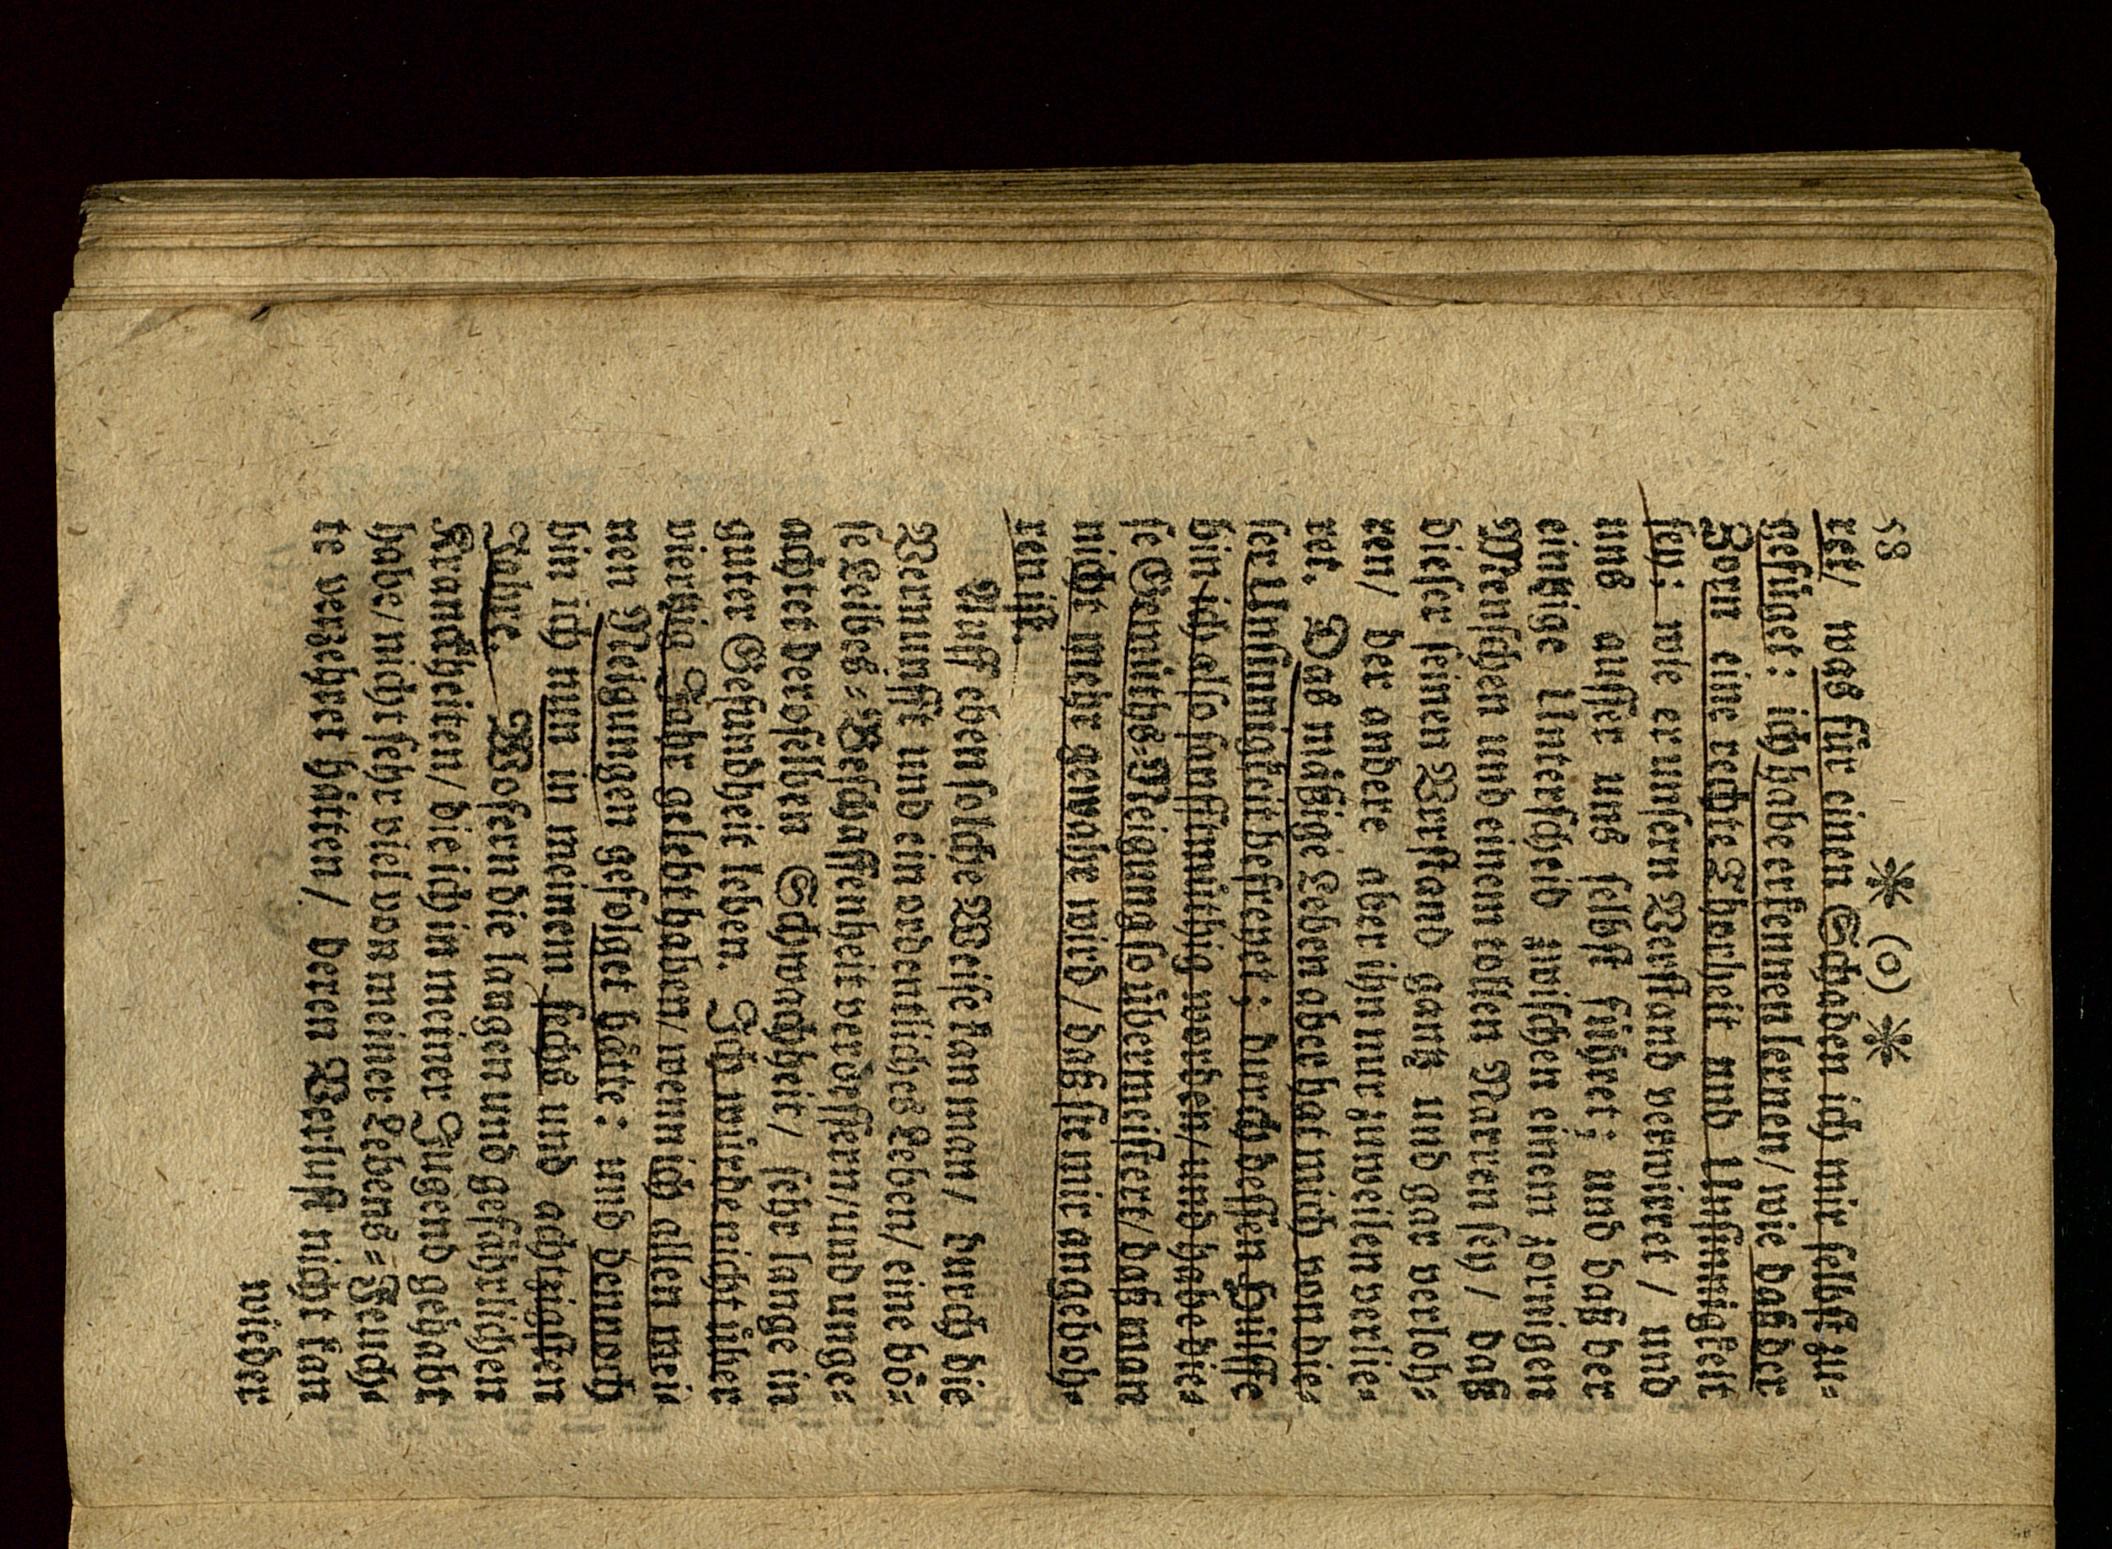 58 * (o) *
ret/ was für einen Schaden ich mir selbst zu-
gefüget: ich habe erkennen lernen/ wie daß der
Zorn eine rechte Thorheit und Unsinnigkeit
sey; wie er unsern Verstand verwirret / und
uns ausser uns selbst führet; und daß der
eintzige Unterscheid zwischen einem zornigen
Menschen und einem tollen Narren sey / daß
dieser seinen Verstand gantz und gar verloh-
ren/ der andere aber ihn nur zuweilen verlie-
ret. Das mäßige Leben aber hat mich von die-
ser Unsinnigkeit befreyet; durch dessen Hülffe
bin ich also sanfftmüthig worden/ und habe die-
se Gemüths-Neigung so übermeistert/ daß man
nicht mehr gewahr wird / daß sie mir angeboh-
ren ist.
Auff eben solche Weise kan man/ durch die
Vernunfft und ein ordentliches Leben/ eine bö-
se Leibes-Beschaffenheit verbessern/ und unge-
achtet derselben Schwachheit/ sehr lange in
guter Gesundheit leben. Ich würde nicht über
viertzig Jahr gelebt haben/ wenn ich allen mei-
nen Neigungen gefolget hätte: und dennoch
bin ich nun in meinem sechs und achtzigsten
Jahre. Wofern die langen und gefährlichen
Kranckheiten/ die ich in meiner Jugend gehabt
habe/ nicht sehr viel von meiner Lebens-Feuch-
te verzehret hätten/ deren Verlust nicht kan
wieder